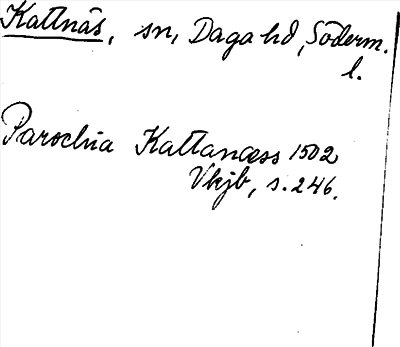 Kattnäs, sn, Daga hd, Söderm.
l.
Parochia Kattanæss 1502
Vkjb, s. 246.